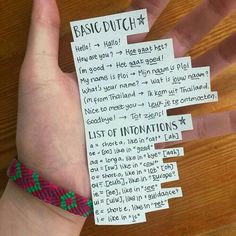 BASIC DUTCH ☆
Hello! → Hallo!
How are you? → Hoe gaat het?
I'm good → Het gaat goed!
My name is Ploi → Mijn naam is Ploi
What's your name? → Wat is jouw naam?
I'm from Thailand → Ik kom uit Thailand.
Nice to meet you → Leuk je te ontmoeten.
Goodbye! → Tot ziens!
LIST OF INTONATIONS ☆
a = short a, like in "cat" [ah]
like in "good"
aa = long a, like in "bye" [aah]
like in "cow"
like in "Europe"
like in "see"
like in "guidance"
e = short e, like in "pet"
i = like in "is"